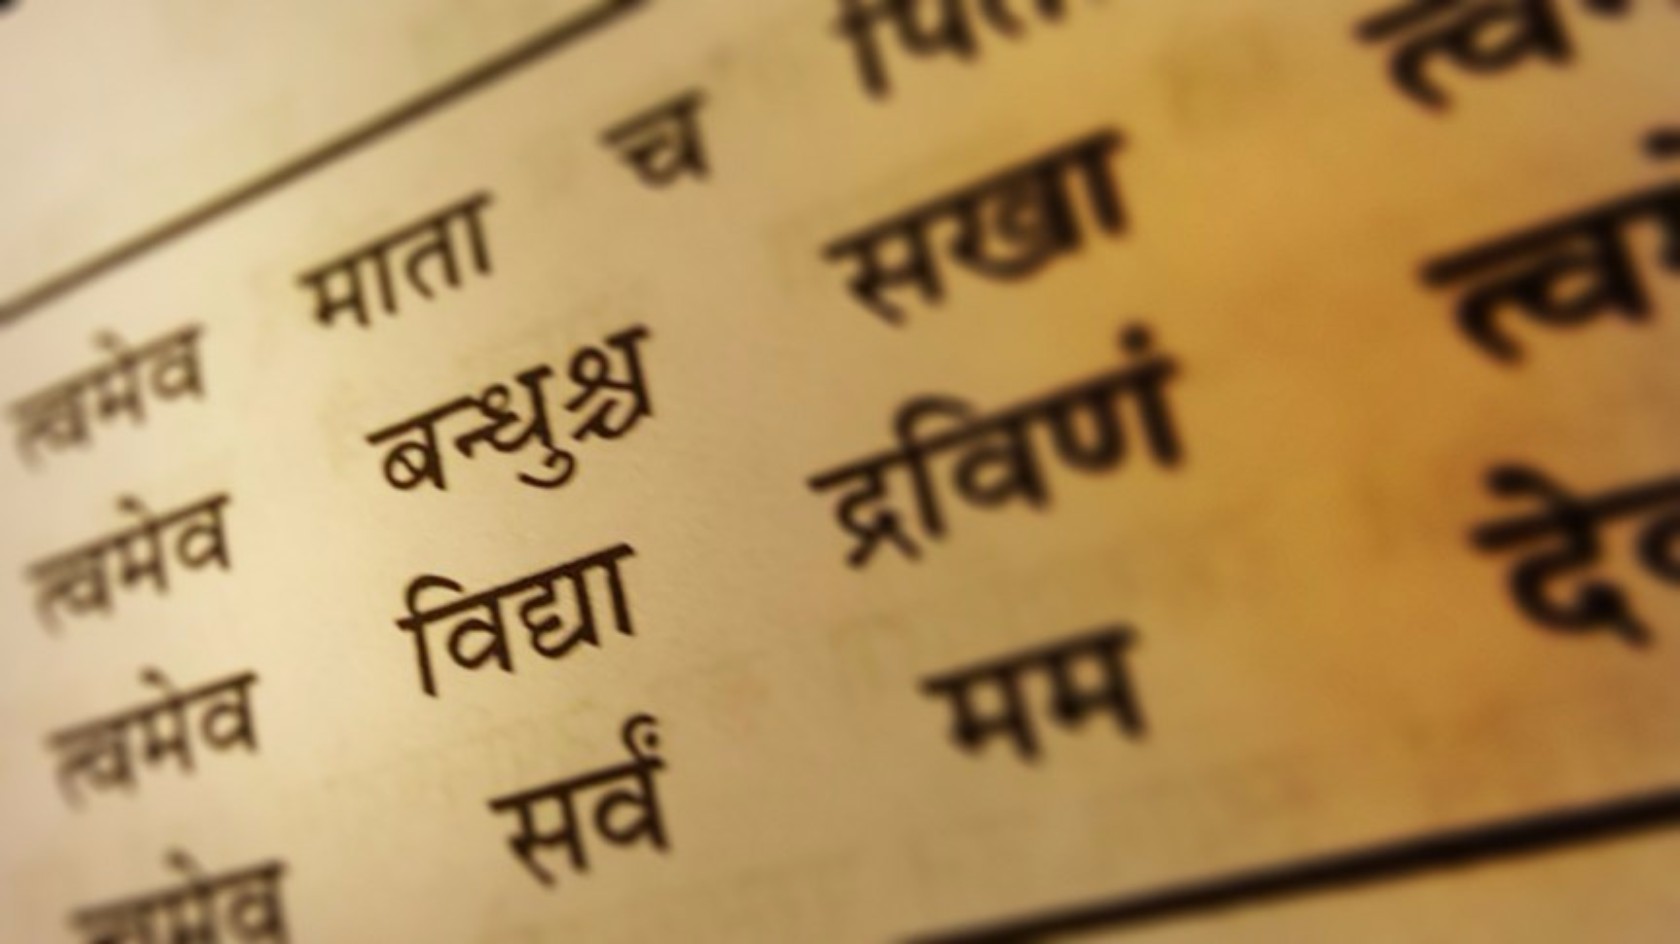 त्वमेव माता च पिता
त्वमेव बन्धुश्च सखा
त्वमेव विद्या द्रविणं
त्वमेव सर्वं मम